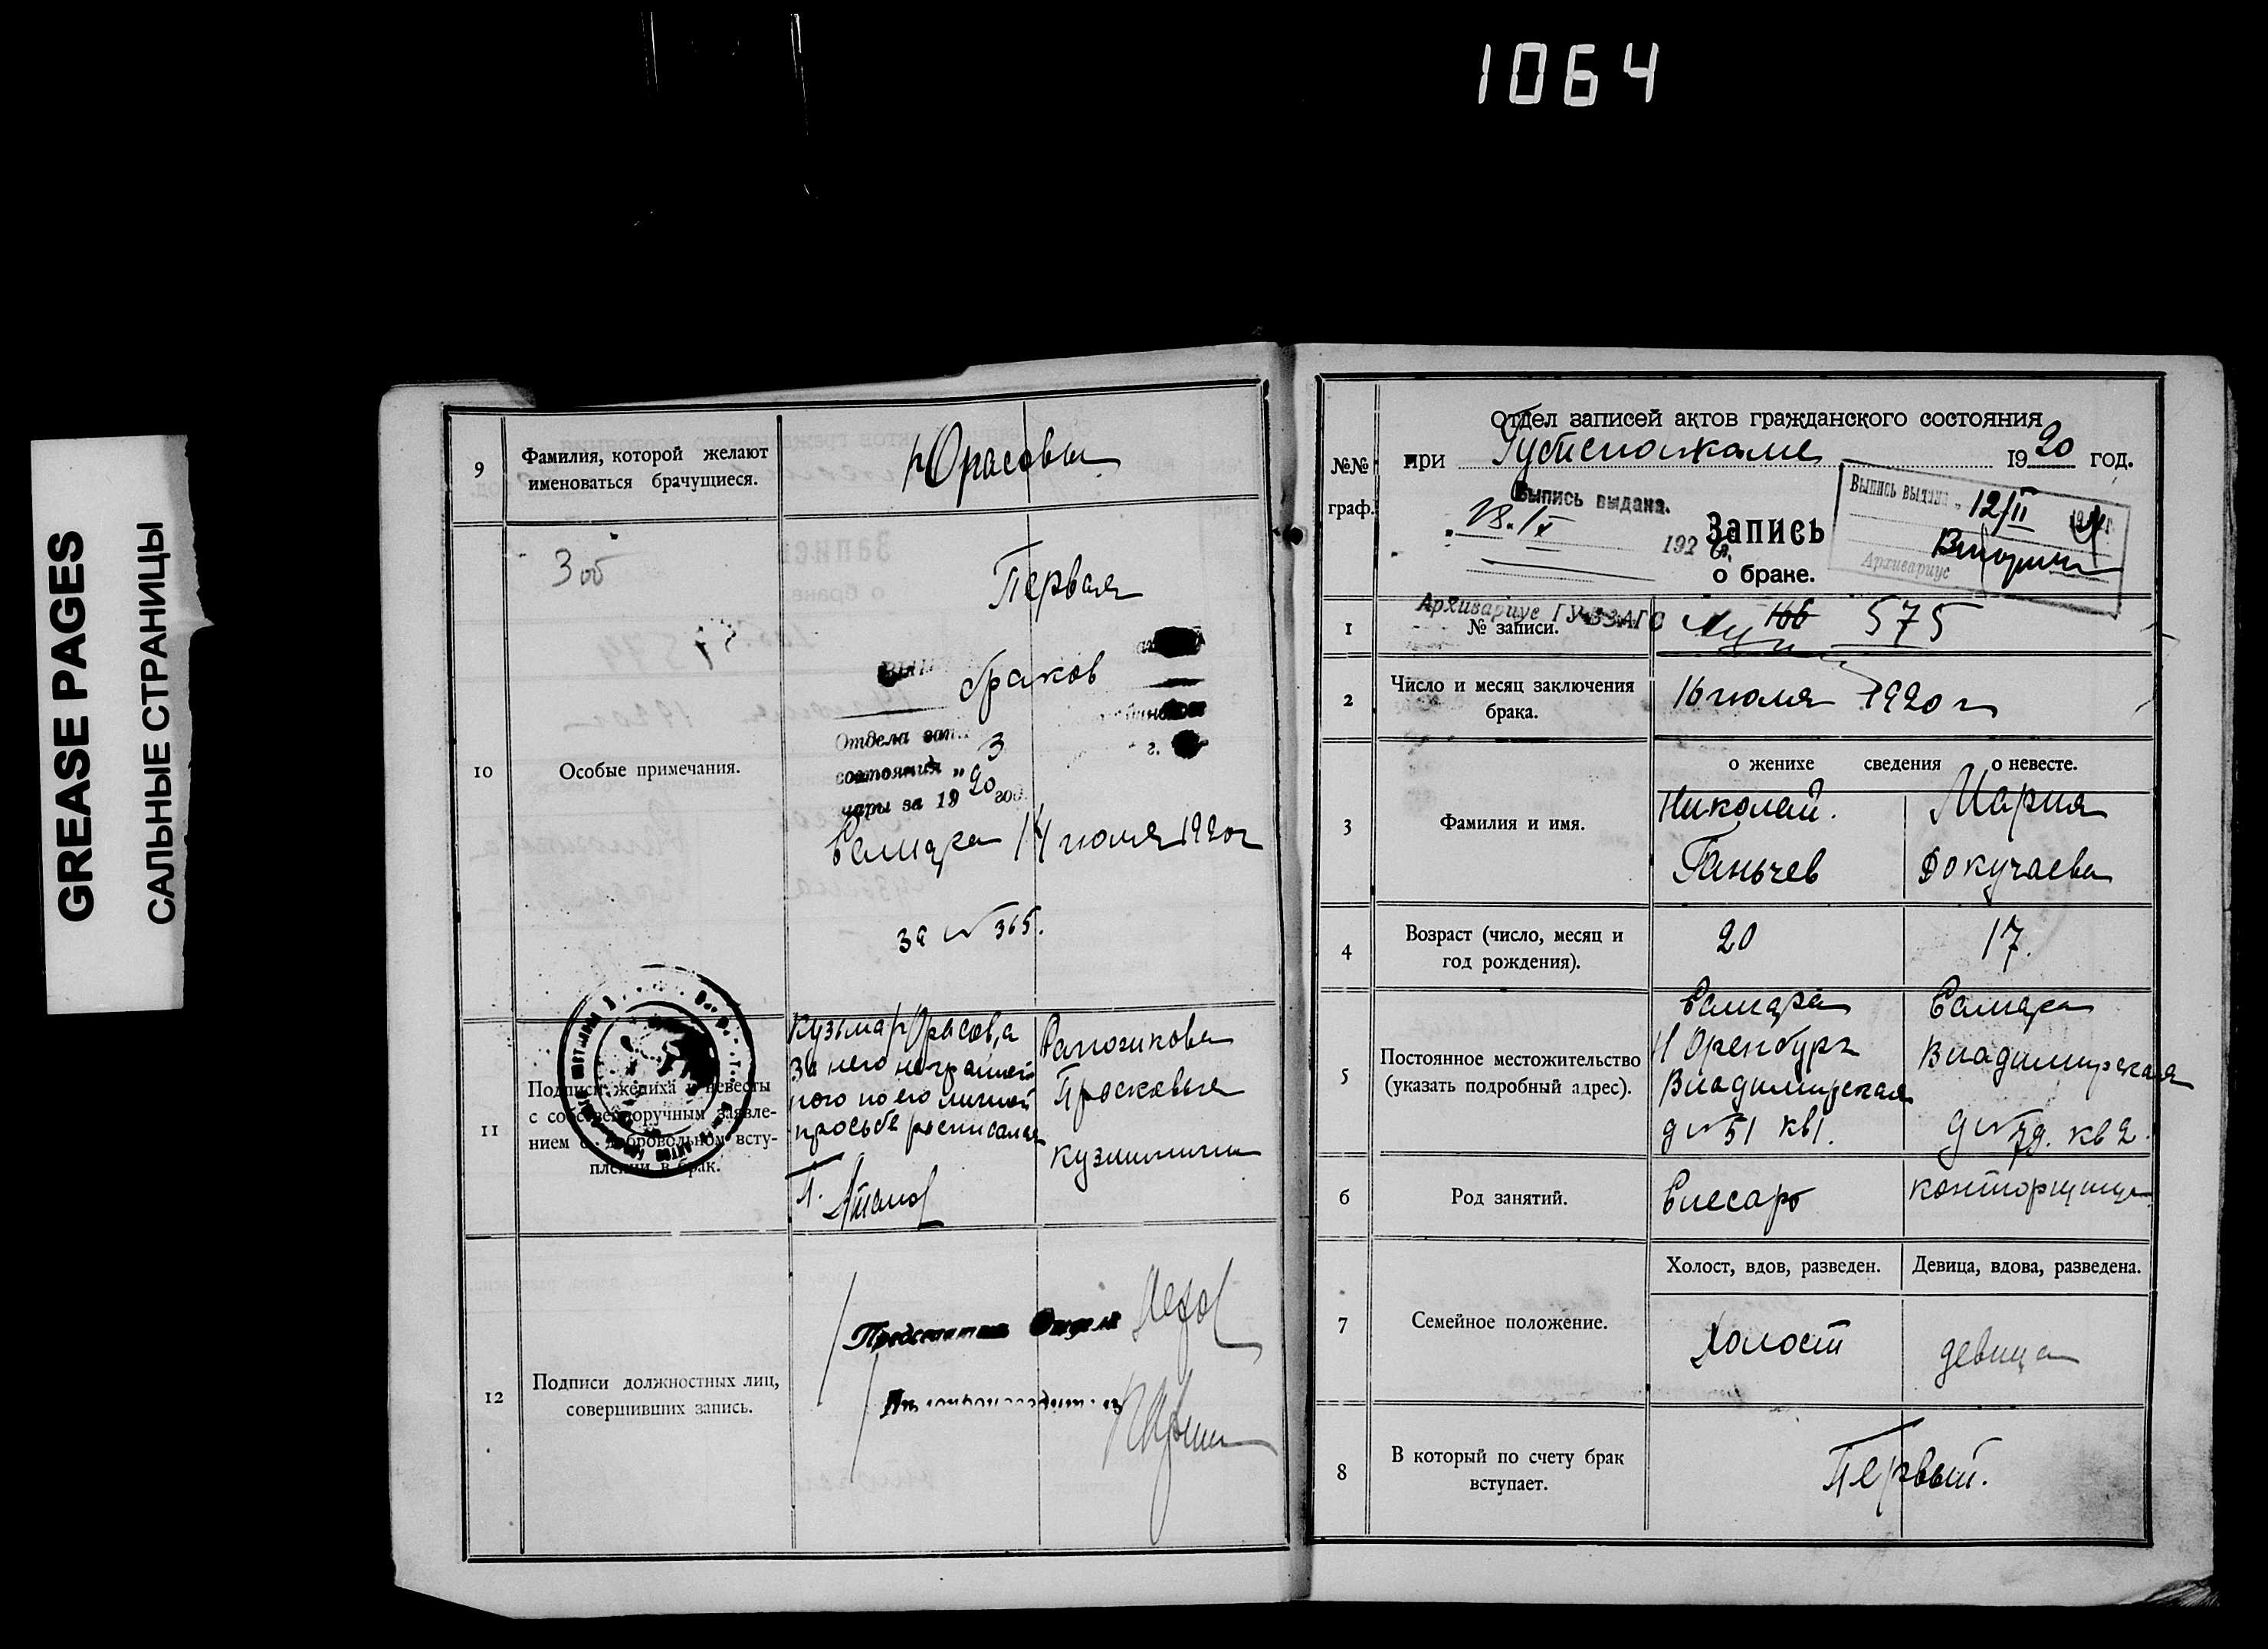 1064
GREASE PAGES
САЛЬНЫЕ СТРАНИЦЫ
9
Фамилия, которой желают
именоваться брачущиеся.
Юрасовы
10
Особые примечания.
Первая
браков
Отдела зап
состояния „ 3
мары за 1920 год.
Самара 14 июля 1920 г
за № 365.
11
Подписи жениха и невесты
с собственноручным заявле-
нием о добровольном всту-
плении в брак.
Кузьма Юрасов, а
за него неграмот-
ного по его личной
просьбе расписался
Прасковья
Кузьминична
12
Подписи должностных лиц,
совершивших запись.
№№
граф.
Отдел записей актов гражданского состояния
при Губисполкоме 1920 год.
Выпись выдана.
192
Выпись выдана 12/II
Архивариус
Запись
о браке.
Архивариус ГУБЗАГС
1
№ записи.
166 575
2
Число и месяц заключения
брака.
16 июля 1920 г
о женихе сведения о невесте.
3
Фамилия и имя.
Николай. Мария
Ганьчев Докучаева
4
Возраст (число, месяц и
год рождения).
20 17.
5
Постоянное местожительство
(указать подробный адрес).
Самара
Н Оренбург
Владимирская
д № 51 кв 1.
Самара
Владимирская
д № кв 2.
6
Род занятий.
Слесарь конторщица
7
Семейное положение.
Холост, вдов, разведен. Девица, вдова, разведена.
Холост девица
8
В который по счету брак
вступает.
Первый.